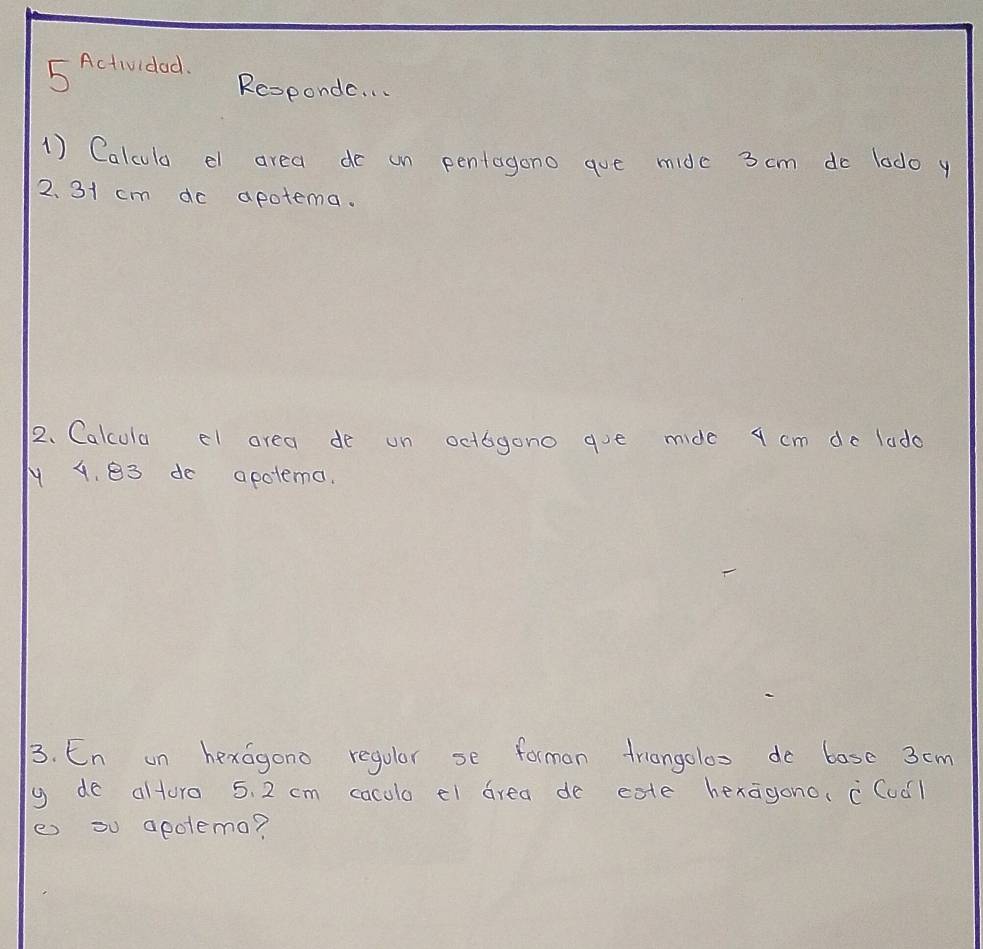 5 Actividad.
Responde...
1) Calcula el area de un pentagono que mide 3 cm de lado y
2.31 cm de apotema.
2. Calcula el area de un octógono que mide 4 cm de lado
y 4.83 de apotema.
3. En un hexágono regular se forman triangulos de base 3cm
y de altura 5.2 cm cacula el área de este hexágono. ¿Cuál
es su apotema?